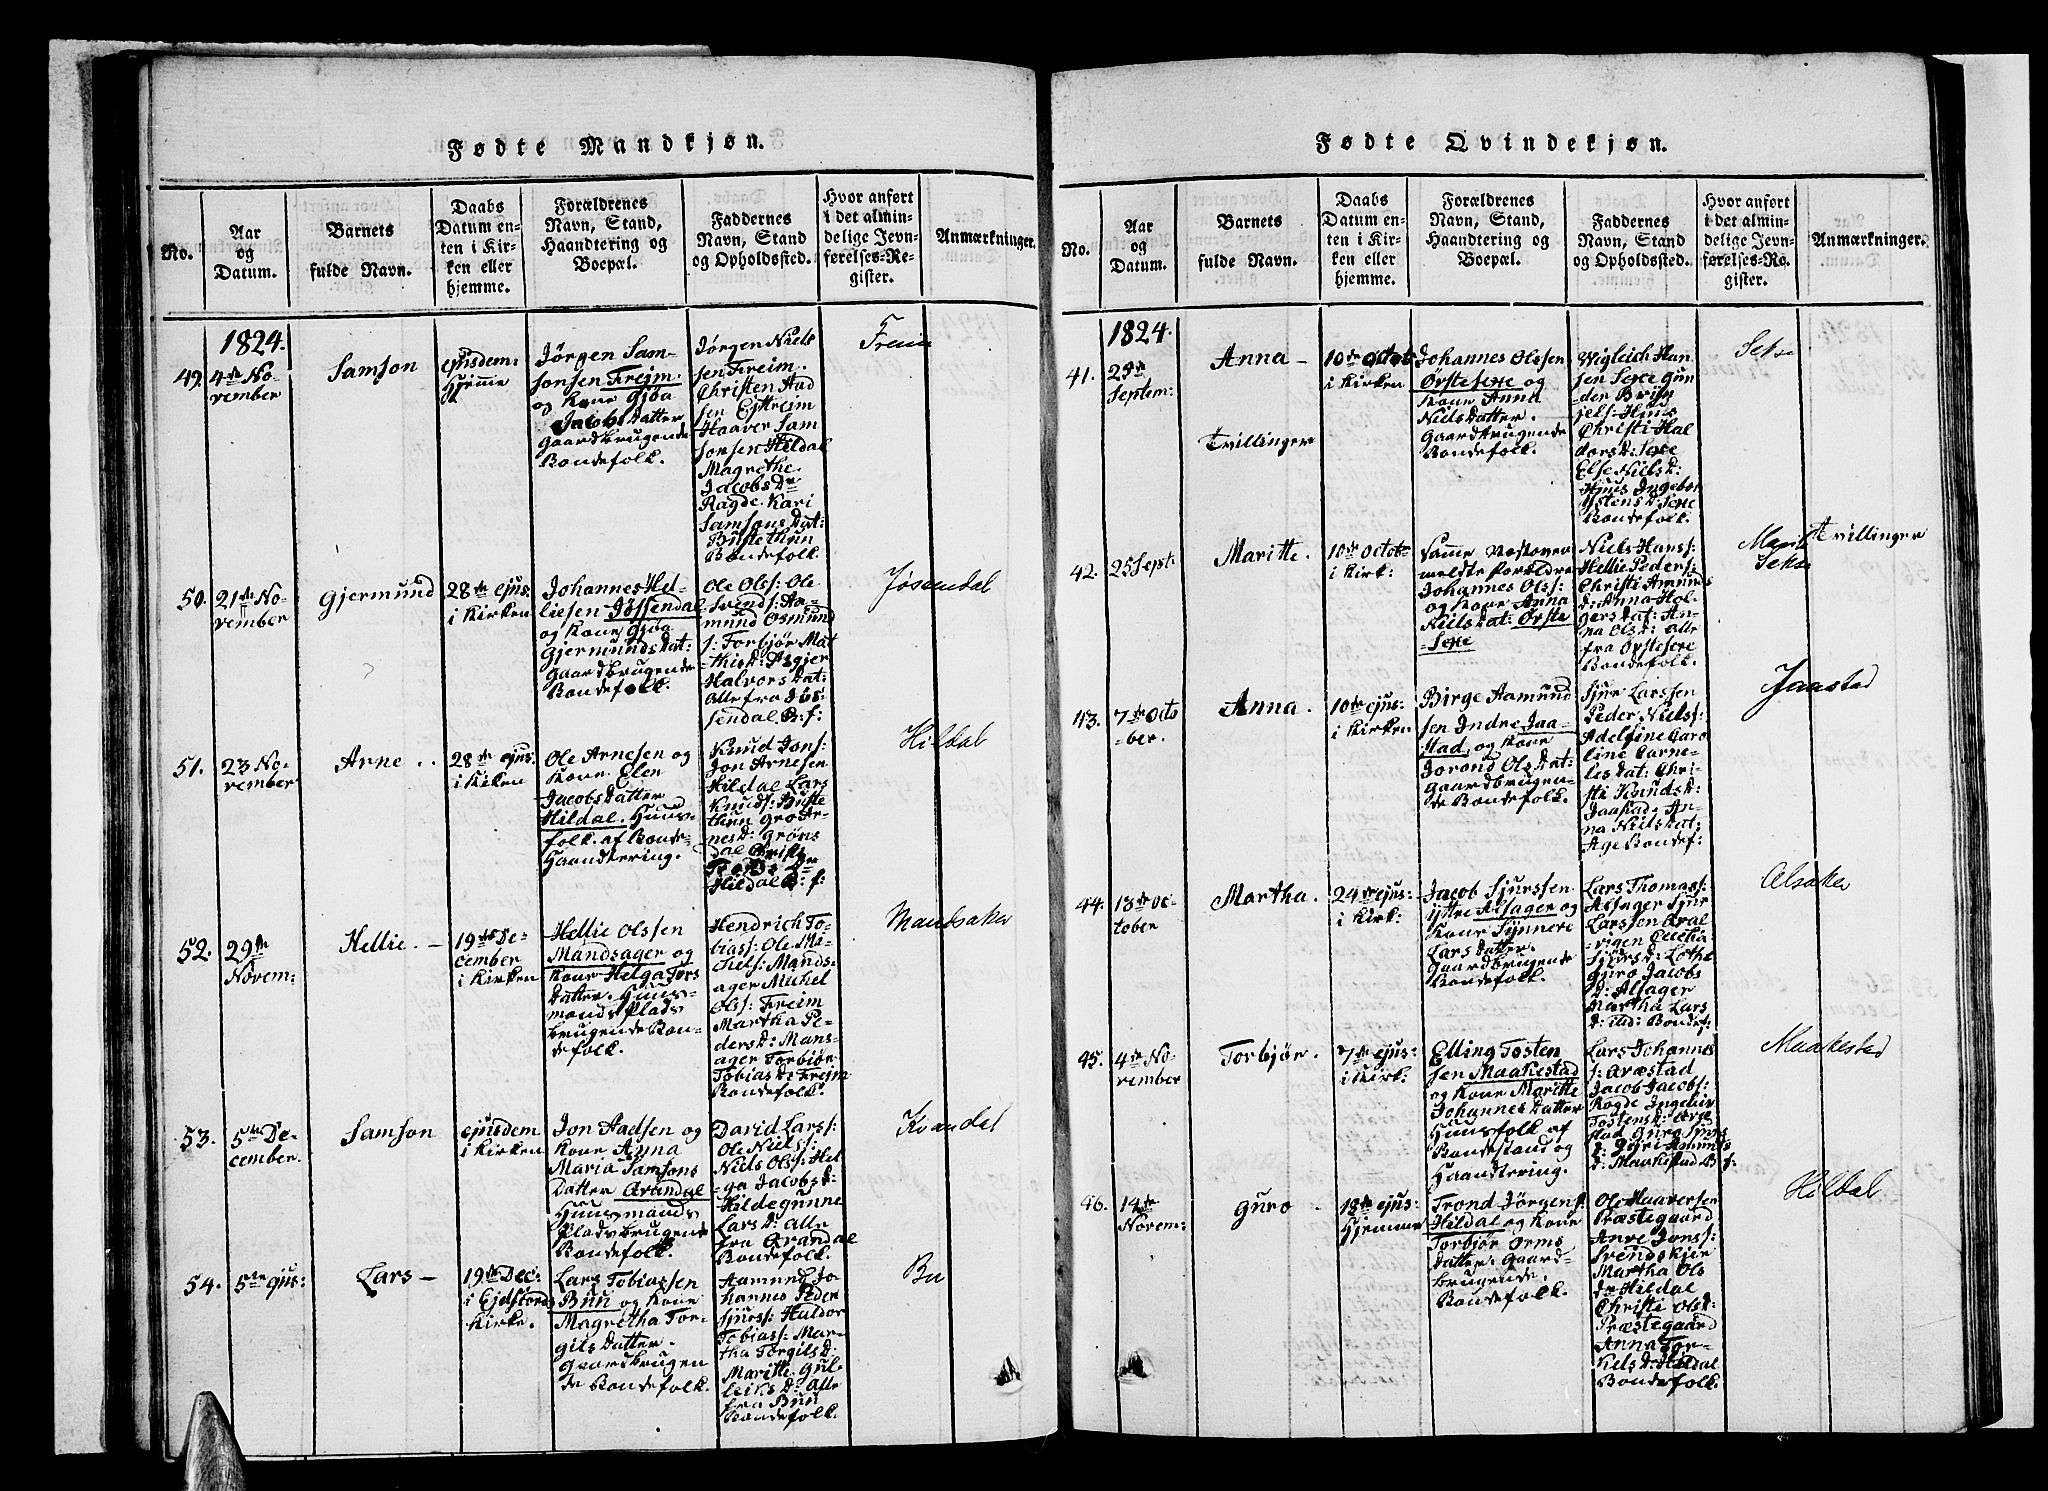 Fødte Mandkjøn.
No.
Aar
og
Datum.
Barnets
fulde Navn.
Daabs
Datum en-
ten i Kir-
ken eller
hjemme.
Forældrenes
Navn, Stand,
Haandtering og
Boepæl.
Faddernes
Navn, Stand
og Opholdssted.
Hvor anført
i det almin-
delige Jevn-
førelses-Re-
gister.
Anmærkninger.
1824.
49. 4de No-
vember
Samson
ejusdem:
Hjemme
Jörgen Sam-
sonsen Freim.
og Kone Gjöa
Jacobs Datter
Gaardbrugende
Bondefolk.
Jörgen Niels
sen Freim.
Christen Aad
sen Ejttreim
Haaver Sam
sonsen Hildal
Magrethe
Jacobs Dr
Ragde. Kari
Samsons Dat:
Bustethun
Bondefolk
Freim
50. 21de No-
vember
Gjermund
28de ejus:
i Kirken
Johannes Hel-
liesen Jössendal
og Kone Gjöa
Gjermunds Dat:
Gaardbrugende
Bondefolk.
Ole Ols: Ole
Svends: Aa-
mund Osmund
s: Torbjør Mat
this D: Asgjer
Halvors Dat:
Alle fra Jös-
sendal B: f:
Jösendal
51. 23 No-
vember
Arne
28de ejus:
i Kirken
Ole Arnesen og
Kone Elen
Jacobs Datter
Hildal. Huus-
folk af Bonde-
Haandtering.
Knud Jons:
Jon Arnesen
Hildal Lars
Knuds: Buste
thun Gro Ar-
nes D: Gröns
dal
Hildal B: f:
Hildal
52. 29de
Novem:
Hellie.
19de De-
cember
i Kirken
Hellie Olssen
Mandsager og
Kone Helga Tors
Datter. Huus-
mands Plads
brugende Bon-
defolk.
Hendrich To-
bias: Ole Mi-
chels: Mands-
ager Michel
Ols: Freim
Martha Pe-
ders D: Mans-
ager Torbiör
Tobias D: Freim
Bondefolk.
Mandsaker
53. 5te De-
cember.
Samson
ejusdem
i Kirken
Jon Aadsen og
Kone Anna
Maria Samsons
Datter Qvandal
Huusmands
Pladsbrugende
Bondefolk.
David Lars:
Ole Niels:
Niels Ols: Hel-
ga Jacobs d:
Hildegunne
Lars D: Alle
fra Qvandal
Bondefolk.
Kvandal
54. 5te ejus:
Lars
19de Dec:
i Ejdsfiords
Kirke.
Lars Tobiassen
Buu og Kone
Magretha Tor-
gils Datter.
Gaardbrugen
de Bondefolk.
Aamund Jo-
hannes Peder
Sjurs: Haldor
Tobias: Mar-
tha Torgils D:
Maritte Gul-
leiks D: Alle
fra Buu
Bondefolk.
Bu
Fødte Qvindekjøn.
No.
Aar
og
Datum.
Barnets
fulde Navn.
Daabs
Datum en-
ten i Kir-
ken eller
hjemme.
Forældrenes
Navn, Stand,
Haandtering og
Boepæl.
Faddernes
Navn, Stand
og Opholdssted.
Hvor anført
i det almin-
delige Jevn-
førelses-Re-
gister.
Anmærkninger.
1824.
41. 29de
Septem:
Anna
Tvillinger
10de Octob
i Kirken
Johannes Olssen
Örstesexe og
Kone Anna
Niels Datter.
Gaardbrugende
Bondefolk.
Wigleich Han
sen Sexe Gun
der Brin
jels: Hius
Christi Hal
dors d: Sexe
Else Niels d:
Hjuus Ingebor
Ystens d: Sexe
Bondefolk.
Sekse
42. 25 Sept:
Maritte.
10de Octob
i Kirk:
Samme
meldte Forældre
Johannes Ols:
og Kone Anna
Niels Dat: Örste
-Sexe
Niels Hans:
Hellie Peders:
Christi Amunds
d: Anna Hol-
gers Dat: An-
na Ols d: alle
fra Örstesexe
Bondefolk.
Marit
Sekse
Tvillinger
43. 7de Octo
ber.
Anna.
10de ejus:
i Kirken
Birge Aamund
sen Indre Jaa-
stad og Kone
Jorond Ols Dat:
Gaardbrugen-
de Bondefolk.
Sjur Larssen
Peder Niels:
Adelsine Caro
line Carne-
lis Dat: Chri-
sti Knuds d:
Jaastad An-
na Niels Dat:
Age Bondef:
Jaastad
44. 13de Oc-
tober
Martha.
24de ejus:
i Kirk:
Jacob Sjurssen
Yttre Alsager og
Kone Synneve
Lars Datter.
Gaardbrugende
Bondefolk.
Lars Thomas:
Alsager Sjur
Larssen Qval
Sjurs d: Lothe
Guro Jacobs
d: Alsager
Martha Lars
d: ibid: Bondef:
Alsaker
45. 4de No-
vember
Torbjør.
7de ejus:
i Kirk:
Elling Tosten
sen Maakestad
og Kone Maritte
Johannes Datter
Huusfolk af
Bondestand og
Haandtering.
Lars Johannes
s: Aræstad
Jacob Jacobs:
Ragde Ingebiör
Tostens d: Aræ
stad Guro Sjurs
d:
d: Maakestad B f:
Maakestad
46. 14de
Novem:
Guro
18de ejus:
Hjemme
Trond Jörgens:
Hildal og Kone
Torbjör Orms
Datter. Gaard-
brugende
Bondefolk.
Ole Haaversen
Præstegaard
Arve Jons:
Svendskjær
Martha Ols
Dr Hildal
Christi Ols d:
Præstegaard
Anna Tor-
kels d: Hildal
Bondefolk.
Hildal